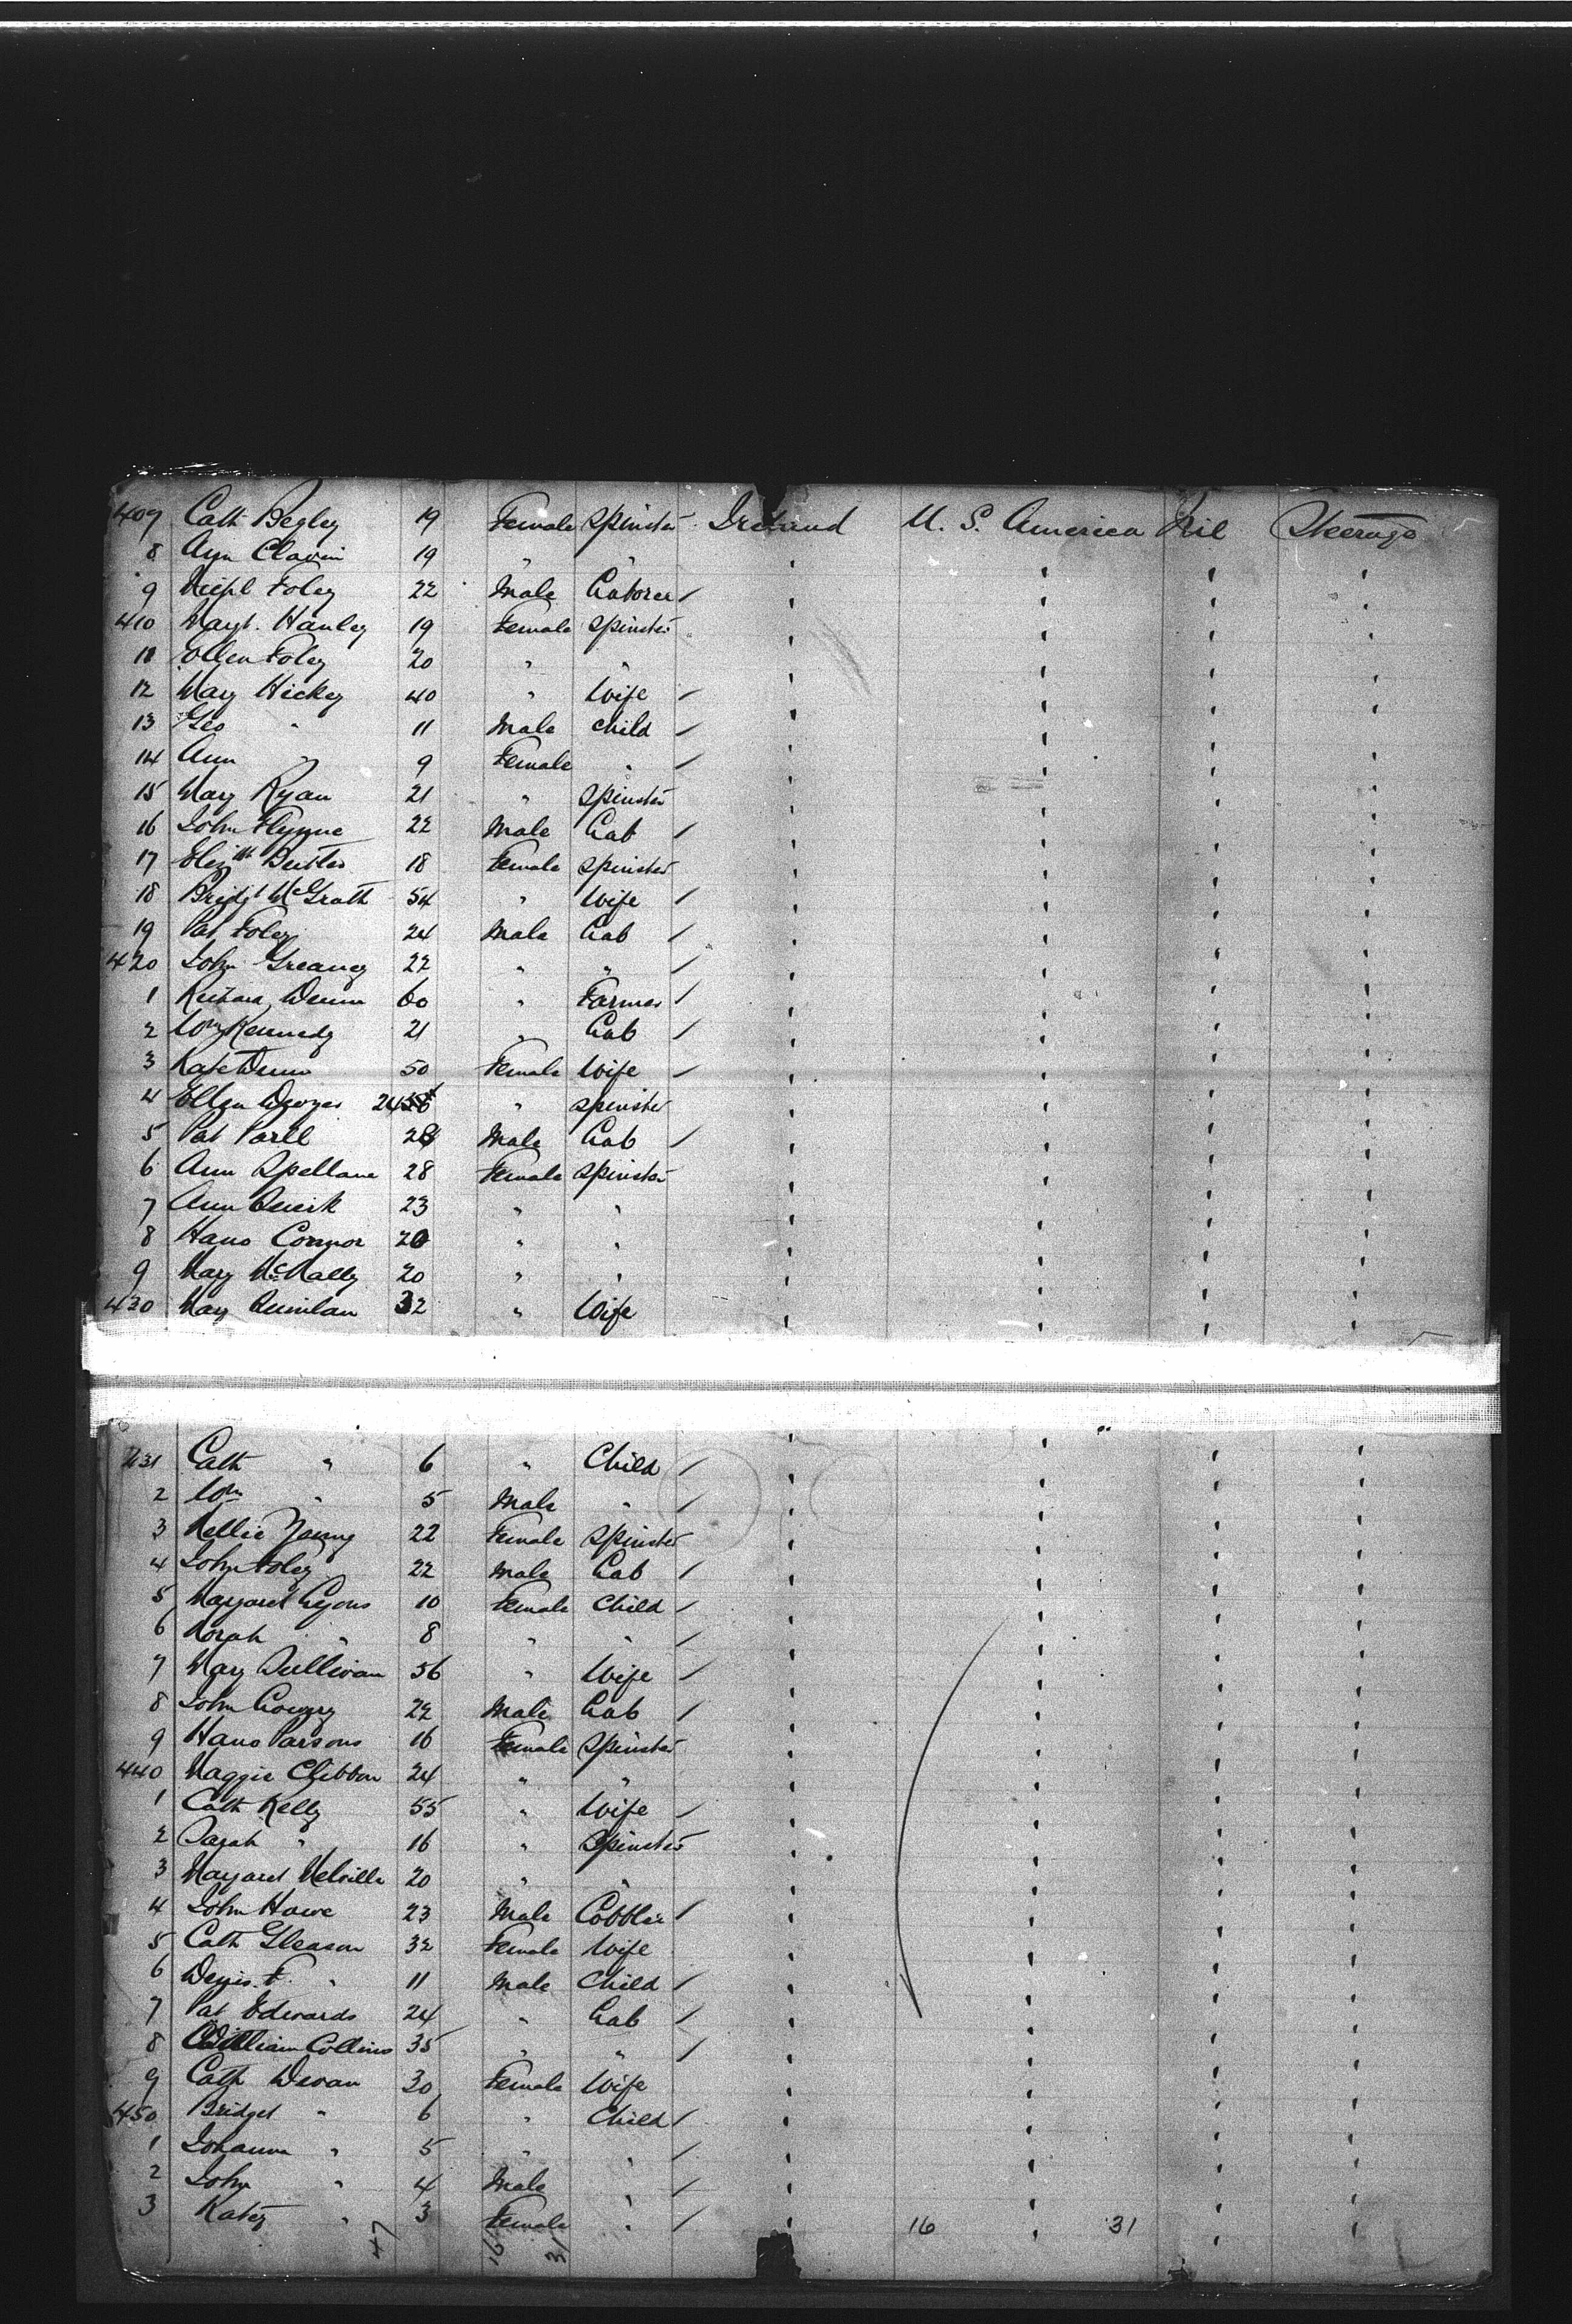 409 Cath Begley 19 Female Spinster Ireland U. S. America Nil Steerage
8 Ann Clavin 19 " "
9 Michl Foley 22 Male Laborer /
410 Margt. Hanley 19 Female Spinster
11 Ellen Foley 20 " "
12 Mary Hickey 40 " Wife /
13 Geo " 11 Male Child /
14 Ann " 9 Female " /
15 Mary Ryan 21 " Spinster
16 John Flynne 22 Male Lab /
17 Elizth Butler 18 Female Spinster
18 Bridgt McGrath 54 " Wife /
19 Pat Foley 24 Male Lab /
420 John Greaney 22 " " /
1 Dunn 60 " Farmer /
2 Wm Kennedy 21 " Lab /
3 Kate Dunn 50 Female Wife /
4 Ellen 24 " Spinster
5 Pat 28 Male Lab /
6 Ann Spellane 28 Female Spinster
7 Ann Quirk 23 " "
8 Hano Connor 20 " "
9 Mary McNally 20 " "
430 Mary Quinlan 32 " Wife
431 Cath " 6 " Child /
2 Wm " 5 Male " /
3 Nellie Young 22 Female Spinster
4 John Foley 22 Male Lab /
5 Margaret Lyons 10 Female Child /
6 Norah " 8 " " /
7 Mary Sullivan 56 " Wife /
8 John 22 Male Lab /
9 Hano Parsons 16 Female Spinster
440 Maggie Clibbon 24 " "
1 Cath Kelly 55 " Wife /
2 Sarah " 16 " Spinster
3 Margaret Melville 20 " "
4 John Howe 23 Male Cobbler /
5 Cath Gleason 32 Female Wife
6 Denis. F. " 11 Male Child /
7 Pat Edwards 24 " Lab /
8 William Collins 35 " " /
9 Cath Devan 30 Female Wife
450 Bridget " 6 " Child /
1 Johanna " 5 " " /
2 John " 4 Male " /
3 Katey " 3 Female " /
16 31
47 16 31